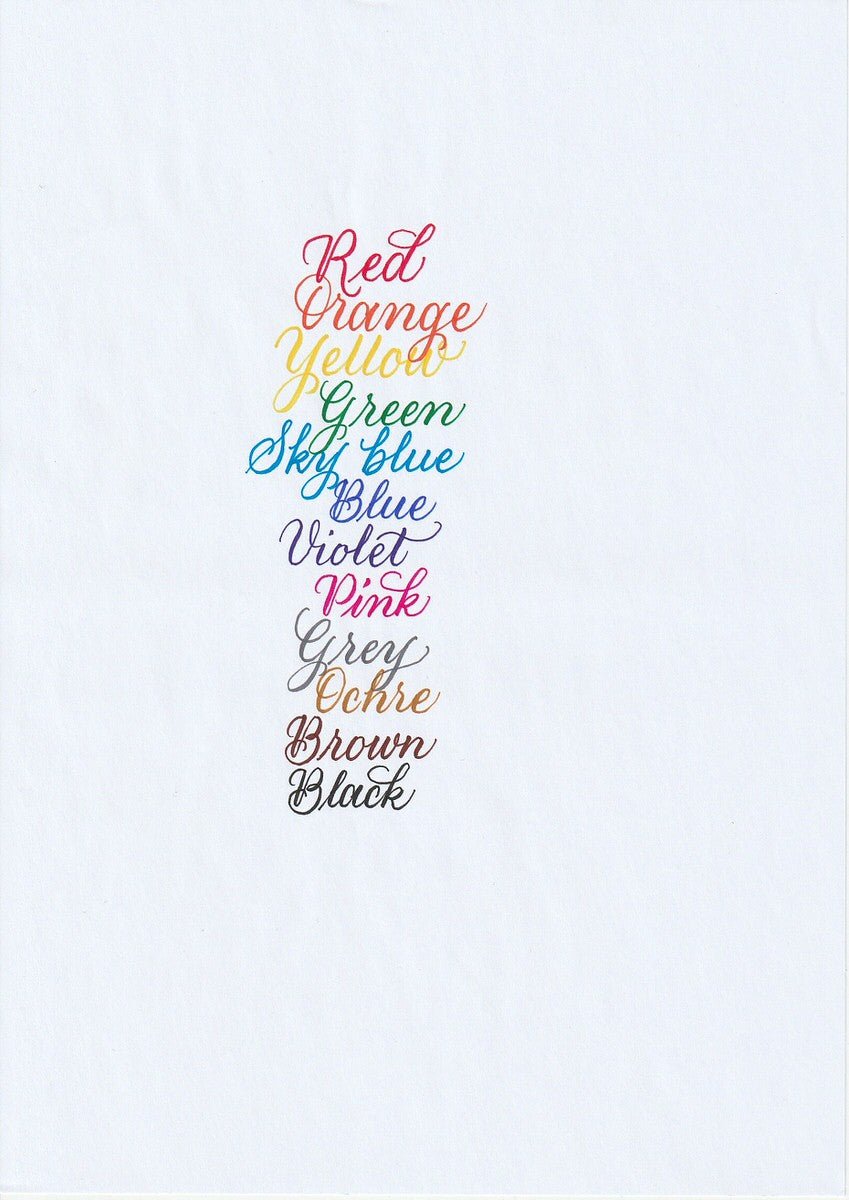 Red
Orange
Yellow
Green
Sky blue
Blue
Violet
Pink
Grey
Ochre
Brown
Black